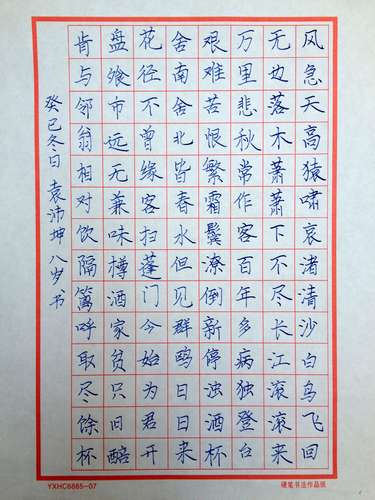 风急天高猿啸哀渚清沙白鸟飞回
无边落木萧萧下不尽长江滚滚来
万里悲秋常作客百年多病独登台
艰难苦恨繁霜鬓潦倒新停浊酒杯
舍南舍北皆春水但见群鸥日日来
花径不曾缘客扫蓬门今始为君开
盘飧市远无兼味樽酒家贫只旧醅
肯与邻翁相对饮隔篱呼取尽馀杯
癸巳冬日 袁沛坤 八岁书
硬笔书法作品纸